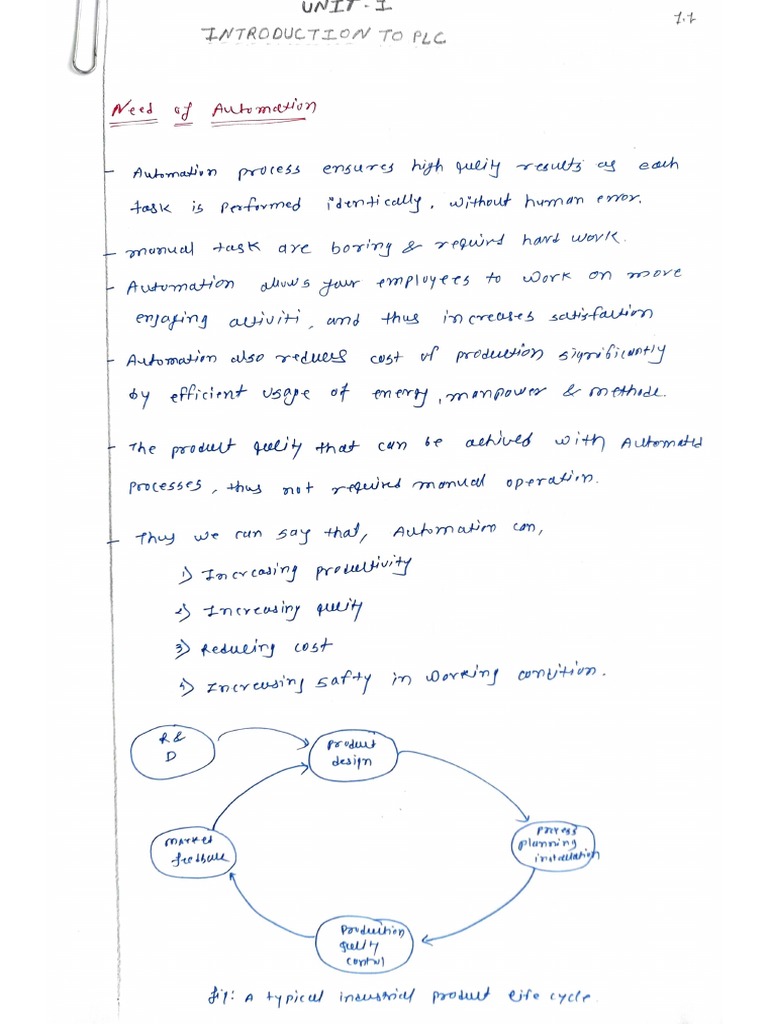 UNIT-I
1.1
INTRODUCTION TO PLC
Need of Automation
- Automation process ensures high qulity results as each
task is performed identically, without human error.
- manual task are boring & requird hard work.
- Automation allows your employees to work on more
engaging activiti, and thus increases satisfaction
- Automation also reduces cost of production significantly
by efficient usage of energy, manpower & methode.
- The product qulity that can be achived with Automated
processes, thus not required manual operation.
- Thus we can say that, Automation can,
1) Increasing productivity
2) Increasing qulity
3) Reducing cost
4) Increasing safty in working contition.
R &
D
Product
design
process
planning
installation
Production
qulity
control
market
feedback
fig: A typical industrial product life cycle.